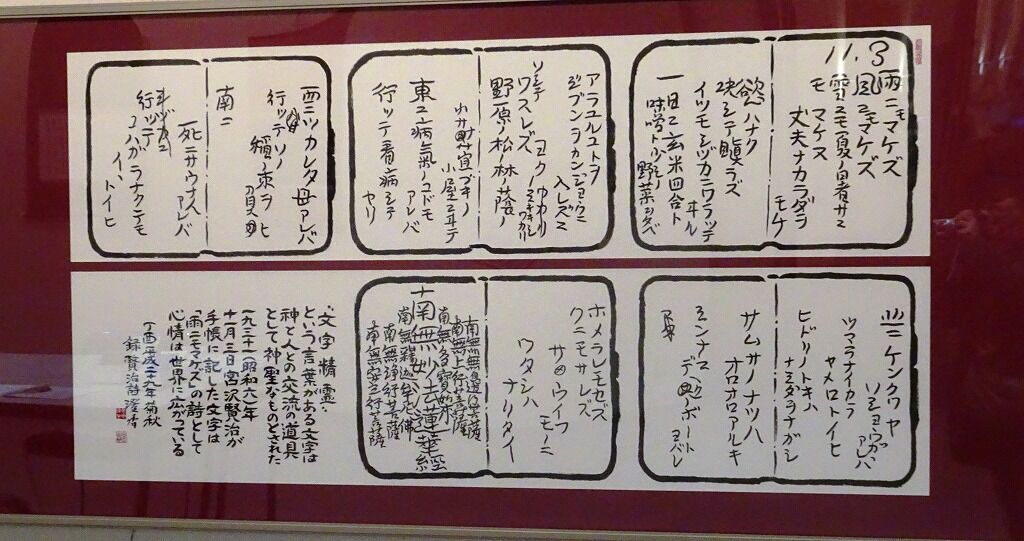 11.3
雨ニモマケズ
風ニモマケズ
雪ニモ夏ノ暑サニ
モ マケヌ
丈夫ナカラダヲ
モチ
慾ハナク
決シテ瞋ラズ
イツモシヅカニワラッテ
ヰル
一日ニ玄米四合ト
味噌ト少シノ
野菜ヲタベ
アラユルコトヲ
ジブンヲカンジョウニ
入レズニ
ヨクミキキシワカリ
ソシテ
ワスレズ
野原ノ松ノ林ノ蔭ノ
小屋ニヰテ
東ニ病氣ノコドモ
アレバ
行ッテ看病シテ
ヤリ
西ニツカレタ母アレバ
行ッテソノ
稲ノ束ヲ
負ヒ
南ニ
死ニサウナ人
アレバ
行ッテ
コハガラナクテモ
イヽ
トイヒ
北ニケンクヮヤ
ソショウガ
アレバ
ツマラナイカラ
ヤメロトイヒ
ヒドリノトキハ
ナミダヲナガシ
サムサノナツハ
オロオロアルキ
ミンナニ
デクノボート
ヨバレ
ホメラレモセズ
クニモサレズ
サウイフ
モノニ
ワタシハ
ナリタイ
南無無邊行菩薩
南無上行菩薩
南無多寶如来
南無妙法蓮華経
南無釋迦牟尼佛
南無浄行菩薩
南無安立行菩薩
・文字情霊・
という言葉がある文字は
神と人との交流の道具
として神聖なものとされた
一九三一(昭和六)年
十一月三日宮沢賢治が
手帳に記した文字は
「雨ニモマケズ」の詩として
心情は世界に広がっている
丁酉平成二十九年菊秋
録賢治詩